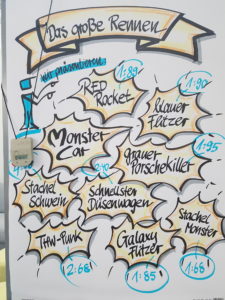 Das große Rennen
wir präsentieren
1:89
1:90
RED
Rocket
blauer
Flitzer
Monster
Car
1:95
grauer
Porschekiller
Stachel
Schwein
2:40
Schnellster
Düsenwagen
Stachel
Monster
THW-Punk
Galaxy
Flitzer
2:68
1:85
1:68